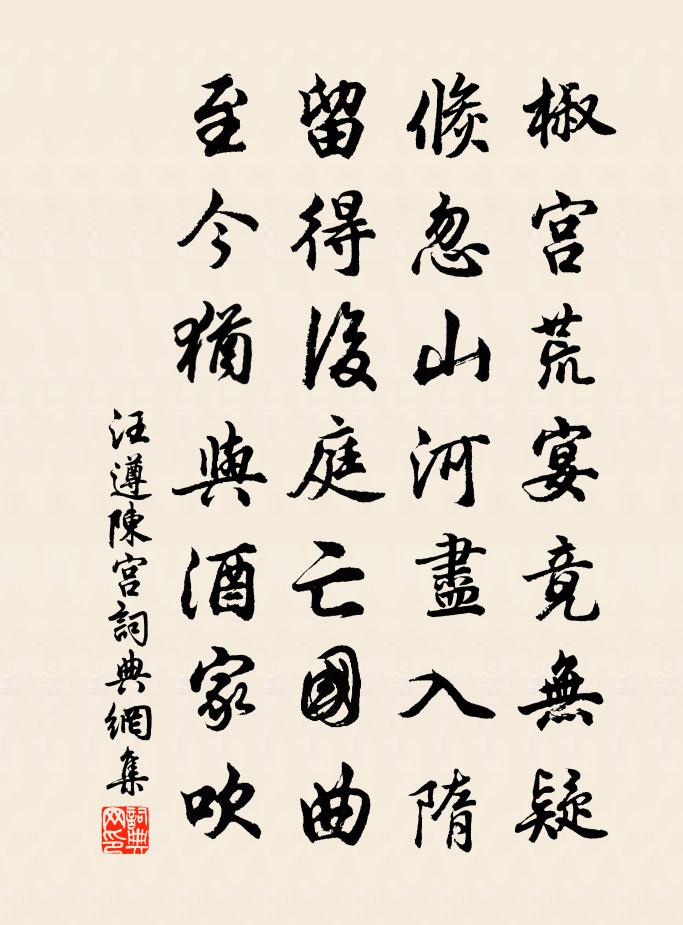 椒宮荒宴竟無疑
倏忽山河盡入隋
留得後庭亡國曲
至今猶與酒家吹
汪遵陳宮詞典網集
詞典网印